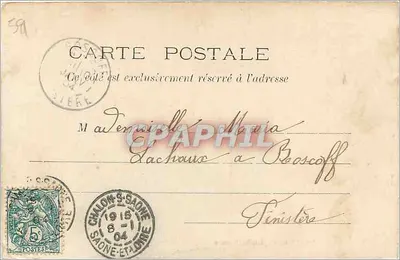 591
CARTE POSTALE
Ce côté est exclusivement réservé à l'adresse
Mademoiselle Maria
Lachaux a Roscoff
Finistère
CPAPHIL
CHALON-S-SAONE
19 15
8 - 1
04
SAONE-ET-LOIRE
5
04